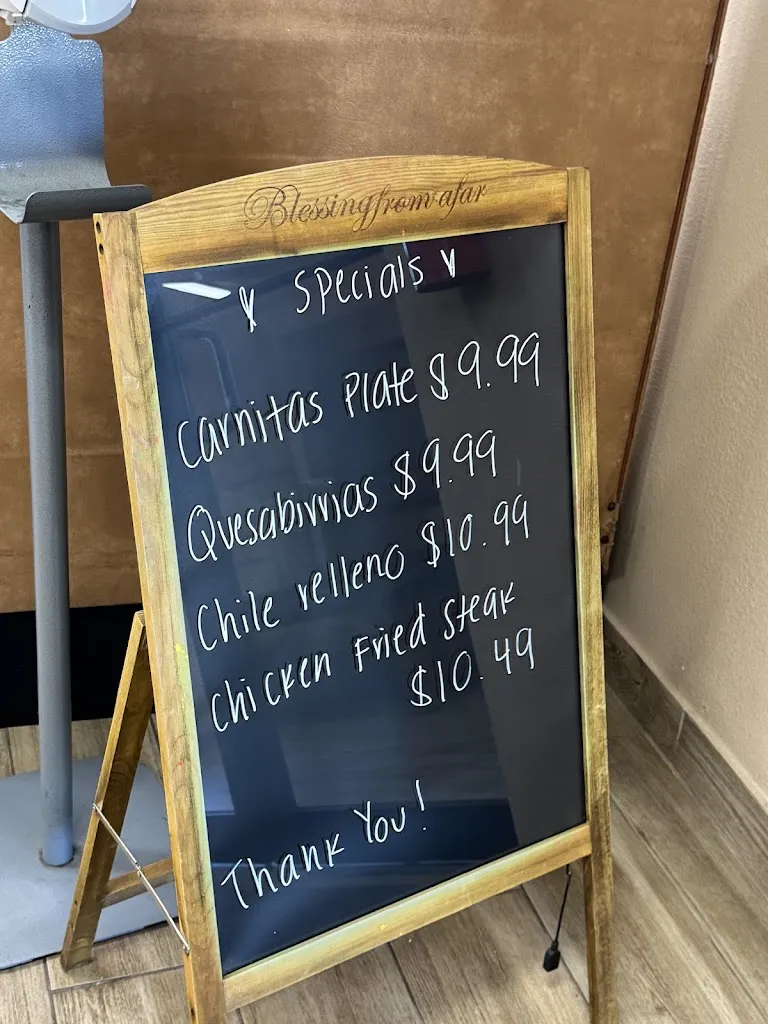 Blessing from afar
Specials
Carnitas Plate $9.99
Quesabirrias $9.99
Chile relleno $10.99
Chicken Fried Steak
$10.49
Thank You!